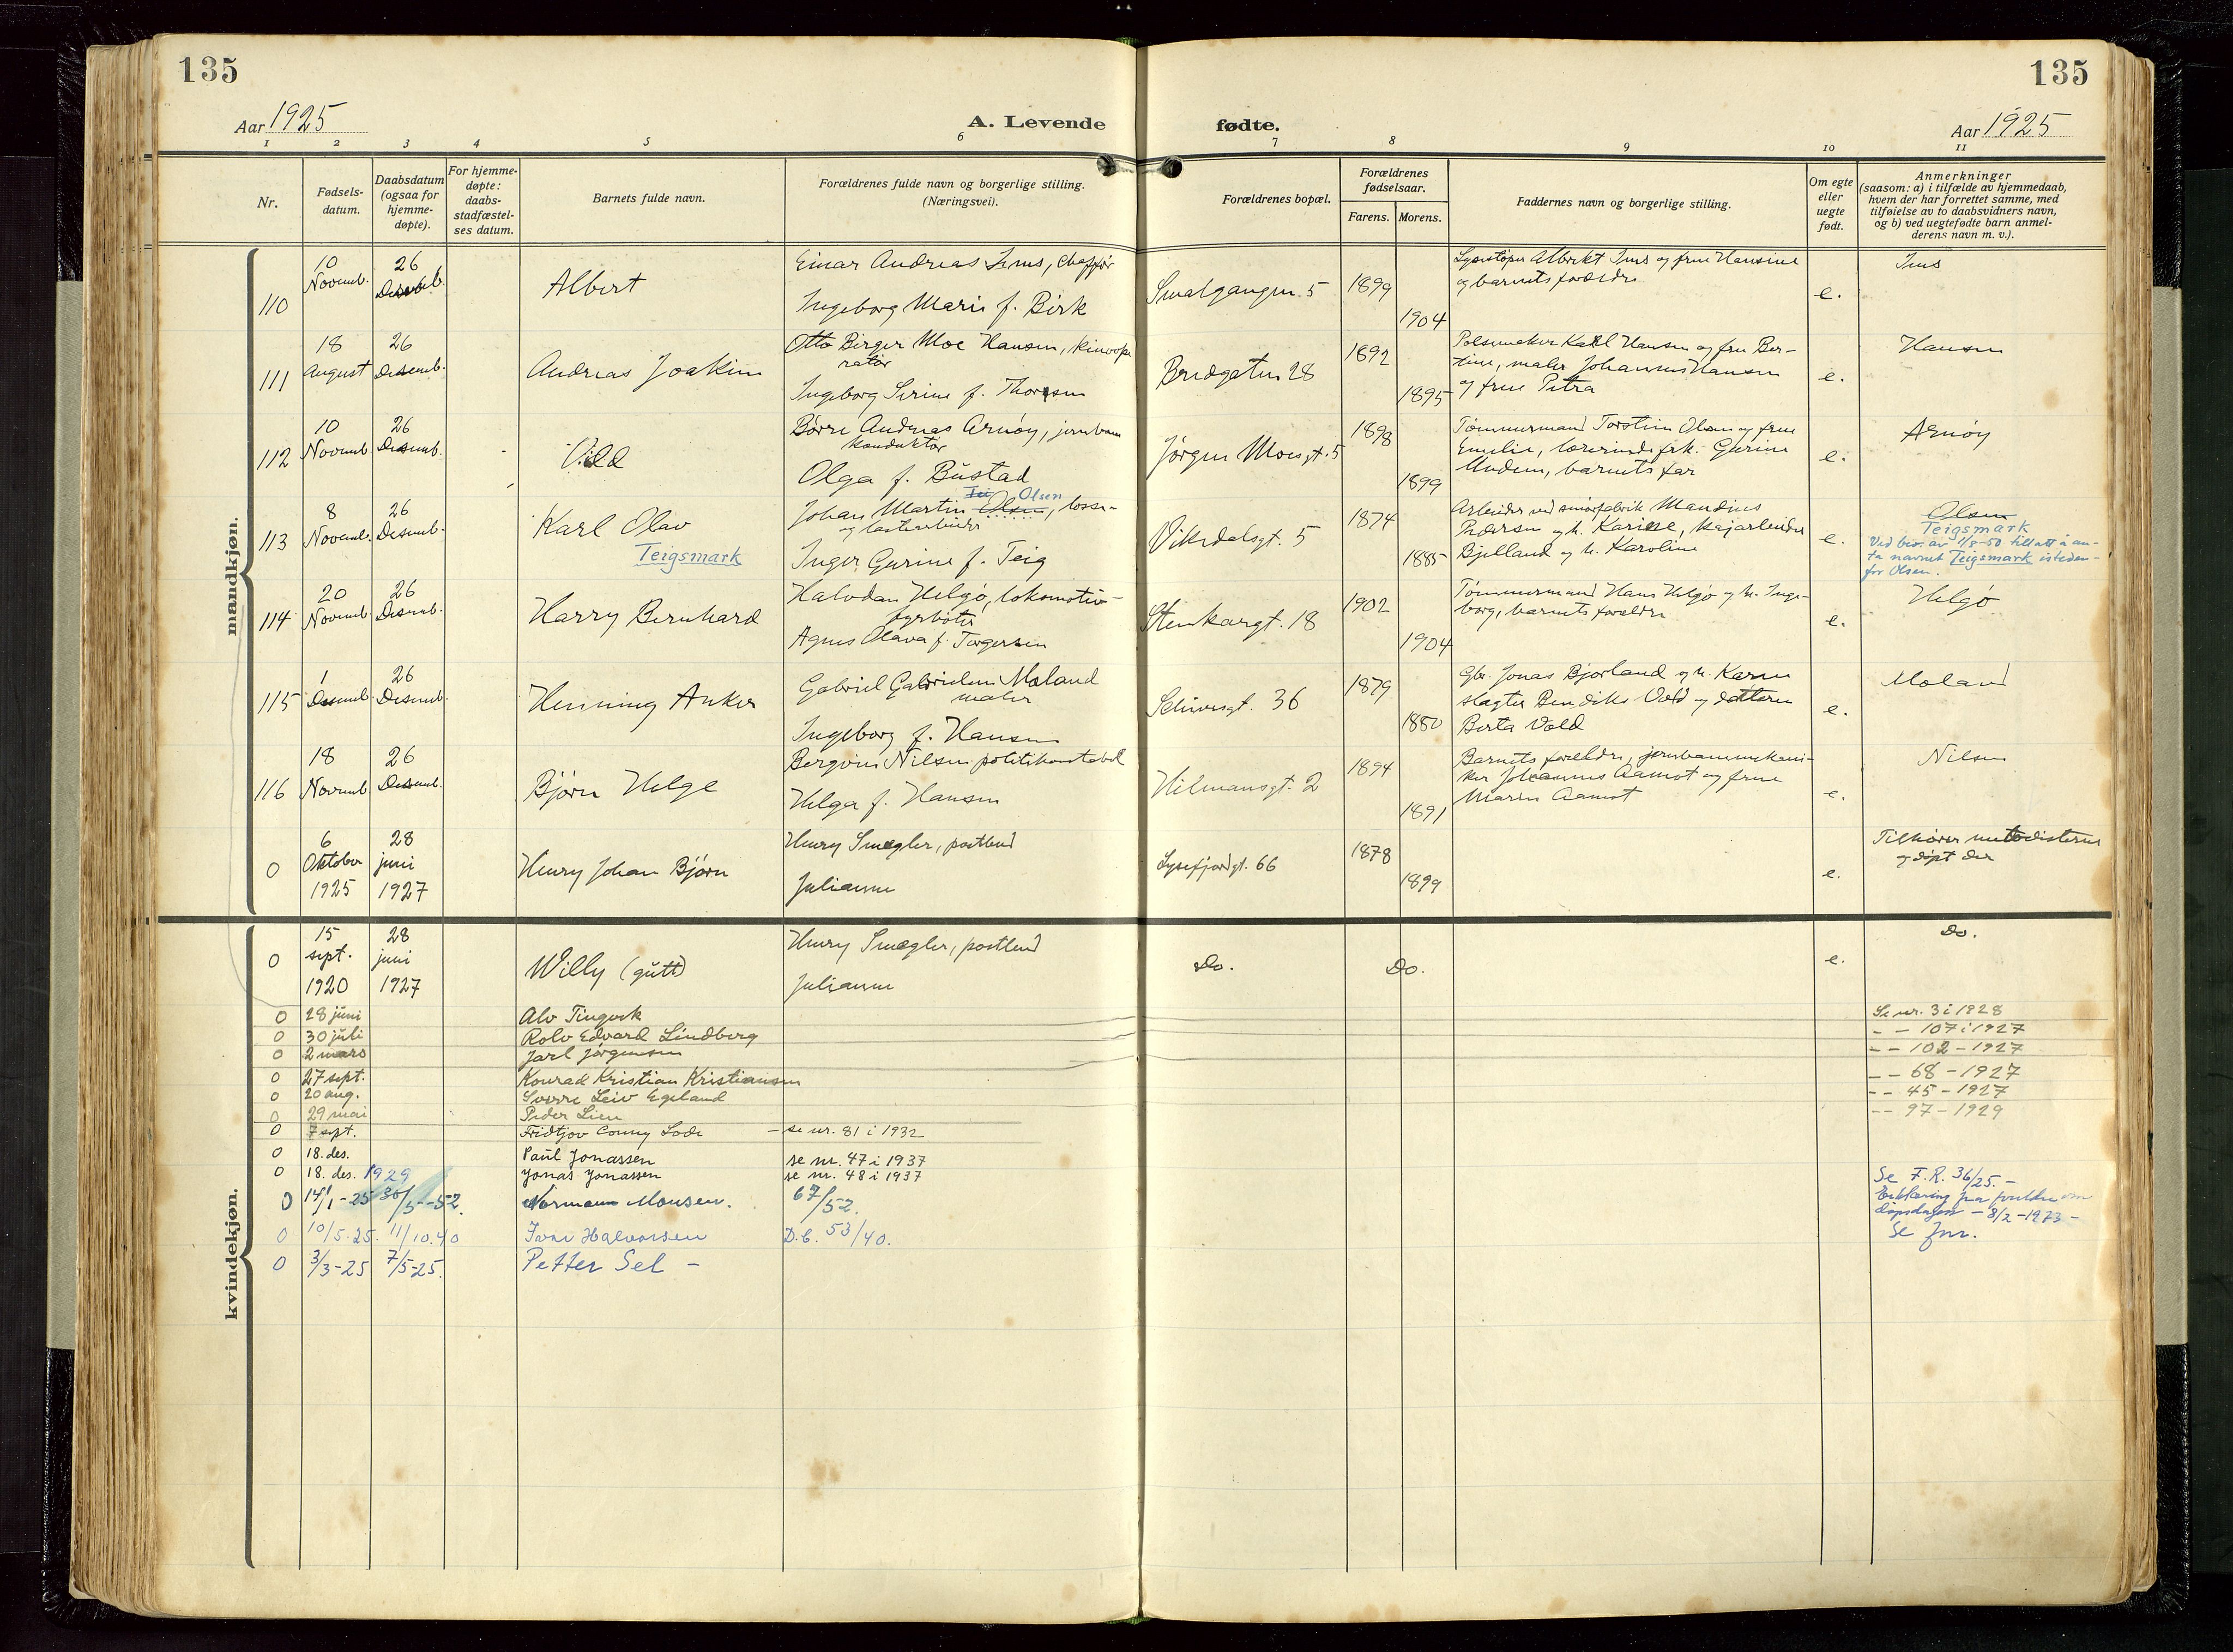 135
135
Aar 1925
A. Levende
fødte.
Aar 1925
1 2 3 4 5 6 7 8 9 10 11
Nr.
Fødsels-
datum.
Daabsdatum
(ogsaa for
hjemme-
døpte).
For hjemme-
døpte:
daabs-
stadfæstel-
ses datum.
Barnets fulde navn.
Forældrenes fulde navn og borgerlige stilling.
(Næringsvei).
Forældrenes bopæl.
Forældrenes
fødselsaar.
Farens. Morens.
Faddernes navn og borgerlige stilling.
Om egte
eller
uegte
født.
Anmerkninger
(saasom: a) i tilfælde av hjemmedaab,
hvem der har forrettet samme, med
tilføielse av to daabsvidners navn,
og b) ved uegtefødte barn anmel-
derens navn m. v.).
mandkjøn.
110
10
Novemb.
26
Desemb.
Albert
Einar Andreas Ims, chaffør
Ingeborg Marie f. Birk
Smalgangen 5
1899
1904
Albrekt Ims og frue Hansine
og barnets forældre
e.
Ims
111
18
August
26
Desemb.
Andreas Joakim
Otto Birger Moe Hansen, kinoope
ratør
Ingeborg Serine f. Thorsen
Bredgaten 28
1892
1895
Pølsemaker Karl Hansen og frue Ber-
tine, maler Johannes Hansen
og frue Petra
e.
Hansen
112
10
Novemb.
26
Desemb.
Odd
Børre Andreas Arnøy, jernbane
konduktør
Olga f. Bustad
Jørgen Moesgt. 5
1898
1899
Tømmermand Torstein Olsen og frue
Emilie, lærerinde frk. Gurine
Undem, barnets far
e.
Arnøy
113
8
Novemb.
26
Desemb.
Karl Olav
Teigsmark
Johan Martin Olsen, losse-
Olsen
og lastearbeider
Inger Gurine f. Teig
Vikedalsgt. 5
1874
1885
Arbeider ved smørfabrik Mandius
Pedersen og h. Karine, kajarbeider
Bjelland og h. Karoline
e.
Olsen
Teigsmark
Ved bev. av 1/8-50 tillatt å an-
ta navnet Teigsmark isteden-
for Olsen.
114
20
Novemb.
26
Desemb.
Harry Bernhard
Halvdan Helgø, lokomotiv-
fyrbøter
Agnes Olava f. Torgersen
Stenkargt. 18
1902
1904
Tømmermand Hans Helgø og h. Inge-
borg, barnets forældre
e.
Helgø
115
1
Desemb.
26
Desemb.
Henning Anker
Gabriel Gabrielsen Moland
maler
Ingeborg f. Hansen
Schiversgt. 36
1879
1880
Gbr. Jonas Bjorland og h. Karen
slagter Bendiks Vold og datteren
Berta Vold
e.
Moland
116
18
Novemb.
26
Desemb.
Bjørn Helge
Bergvin Nilsen politikonstabel
Helga f. Hansen
Hilmansgt. 2
1894
1891
Barnets forældre, jernbanemekani-
ker Johannes Aamot og frue
Maren Aamot
e.
Nilsen
0
6
Oktober
1925
28
juni
1927
Henry Johan Bjørn
Henry Smegler, postbud
Julianne
Lysefjordgt. 66
1878
1899
e.
Tilhører metodisterne
og døpt der
kvindekjøn.
0
15
sept.
1920
28
juni
1927
Willy (gutt)
Henry Smegler, postbud
Julianne
Do.
Do.
e.
Do.
0 28 juni Alv Tingvik Se nr. 3 i 1928
0 30 juli Rolv Edvard Lindberg - - 107 i 1927
0 2 mars Jarl Jørgensen - - 102 - 1927
0 27 sept. Konrad Kristian Kristiansen - - 68 - 1927
0 20 aug. Sverre Leiv Egeland - - 45 - 1927
0 29 mai Peder Lien - - 97 - 1929
0 7 sept. Fridtjov Conny Lode - se nr. 81 i 1932
0 18. des. Paul Jonassen se nr. 47 i 1937
0 18. des. 1929 Jonas Jonassen se nr. 48 i 1937
0 14/1-25 30/5-52. Normann Monsen. 67/52.
Se F.R. 36/25. -
Erklæring fra foreldre om
dåpsdagen - 8/2-1973 -
0 10/5-25. 11/10.40 Ivar Halvorsen D.b. 53/40.
Se fnr.
0 3/3-25 7/5-25. Petter Sel -